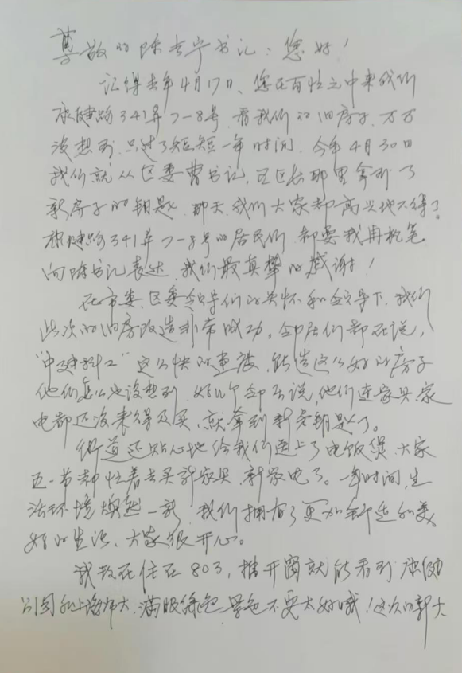 尊敬的陈吉宁书记：您好！
记得去年4月17日，您在百忙之中来我们
康健路341弄7-8号，看我们的旧房子，万万
没想到，只过了短短一年时间，今年4月30日
我们就从区委曹书记、王区长那里拿到了
新房子的钥匙，那天我们大家都高兴地不得了，
康健路341弄7-8号的居民们，都要我用执笔
向陈书记表达，我们最真挚的感谢！
在市委、区委领导们的关怀和领导下，我们
此次的旧房改造非常成功，邻居们都在说，
这么快的速度，能造这么好的房子
他们怎么也没想到，好几个邻居说，他们连家具家
电都还没来得及买，就拿到新房钥匙了。
街道还贴心地给我们送上了电饭煲，大家
五一节都忙着去买新家具、新家电了。一年时间，生
活环境焕然一新，我们拥有了更加舒适和美
好的生活，大家很开心。
我现在住在803，推开窗就能看到康健
公园和上海师大，满眼绿色，景色不要太好哦！这次的